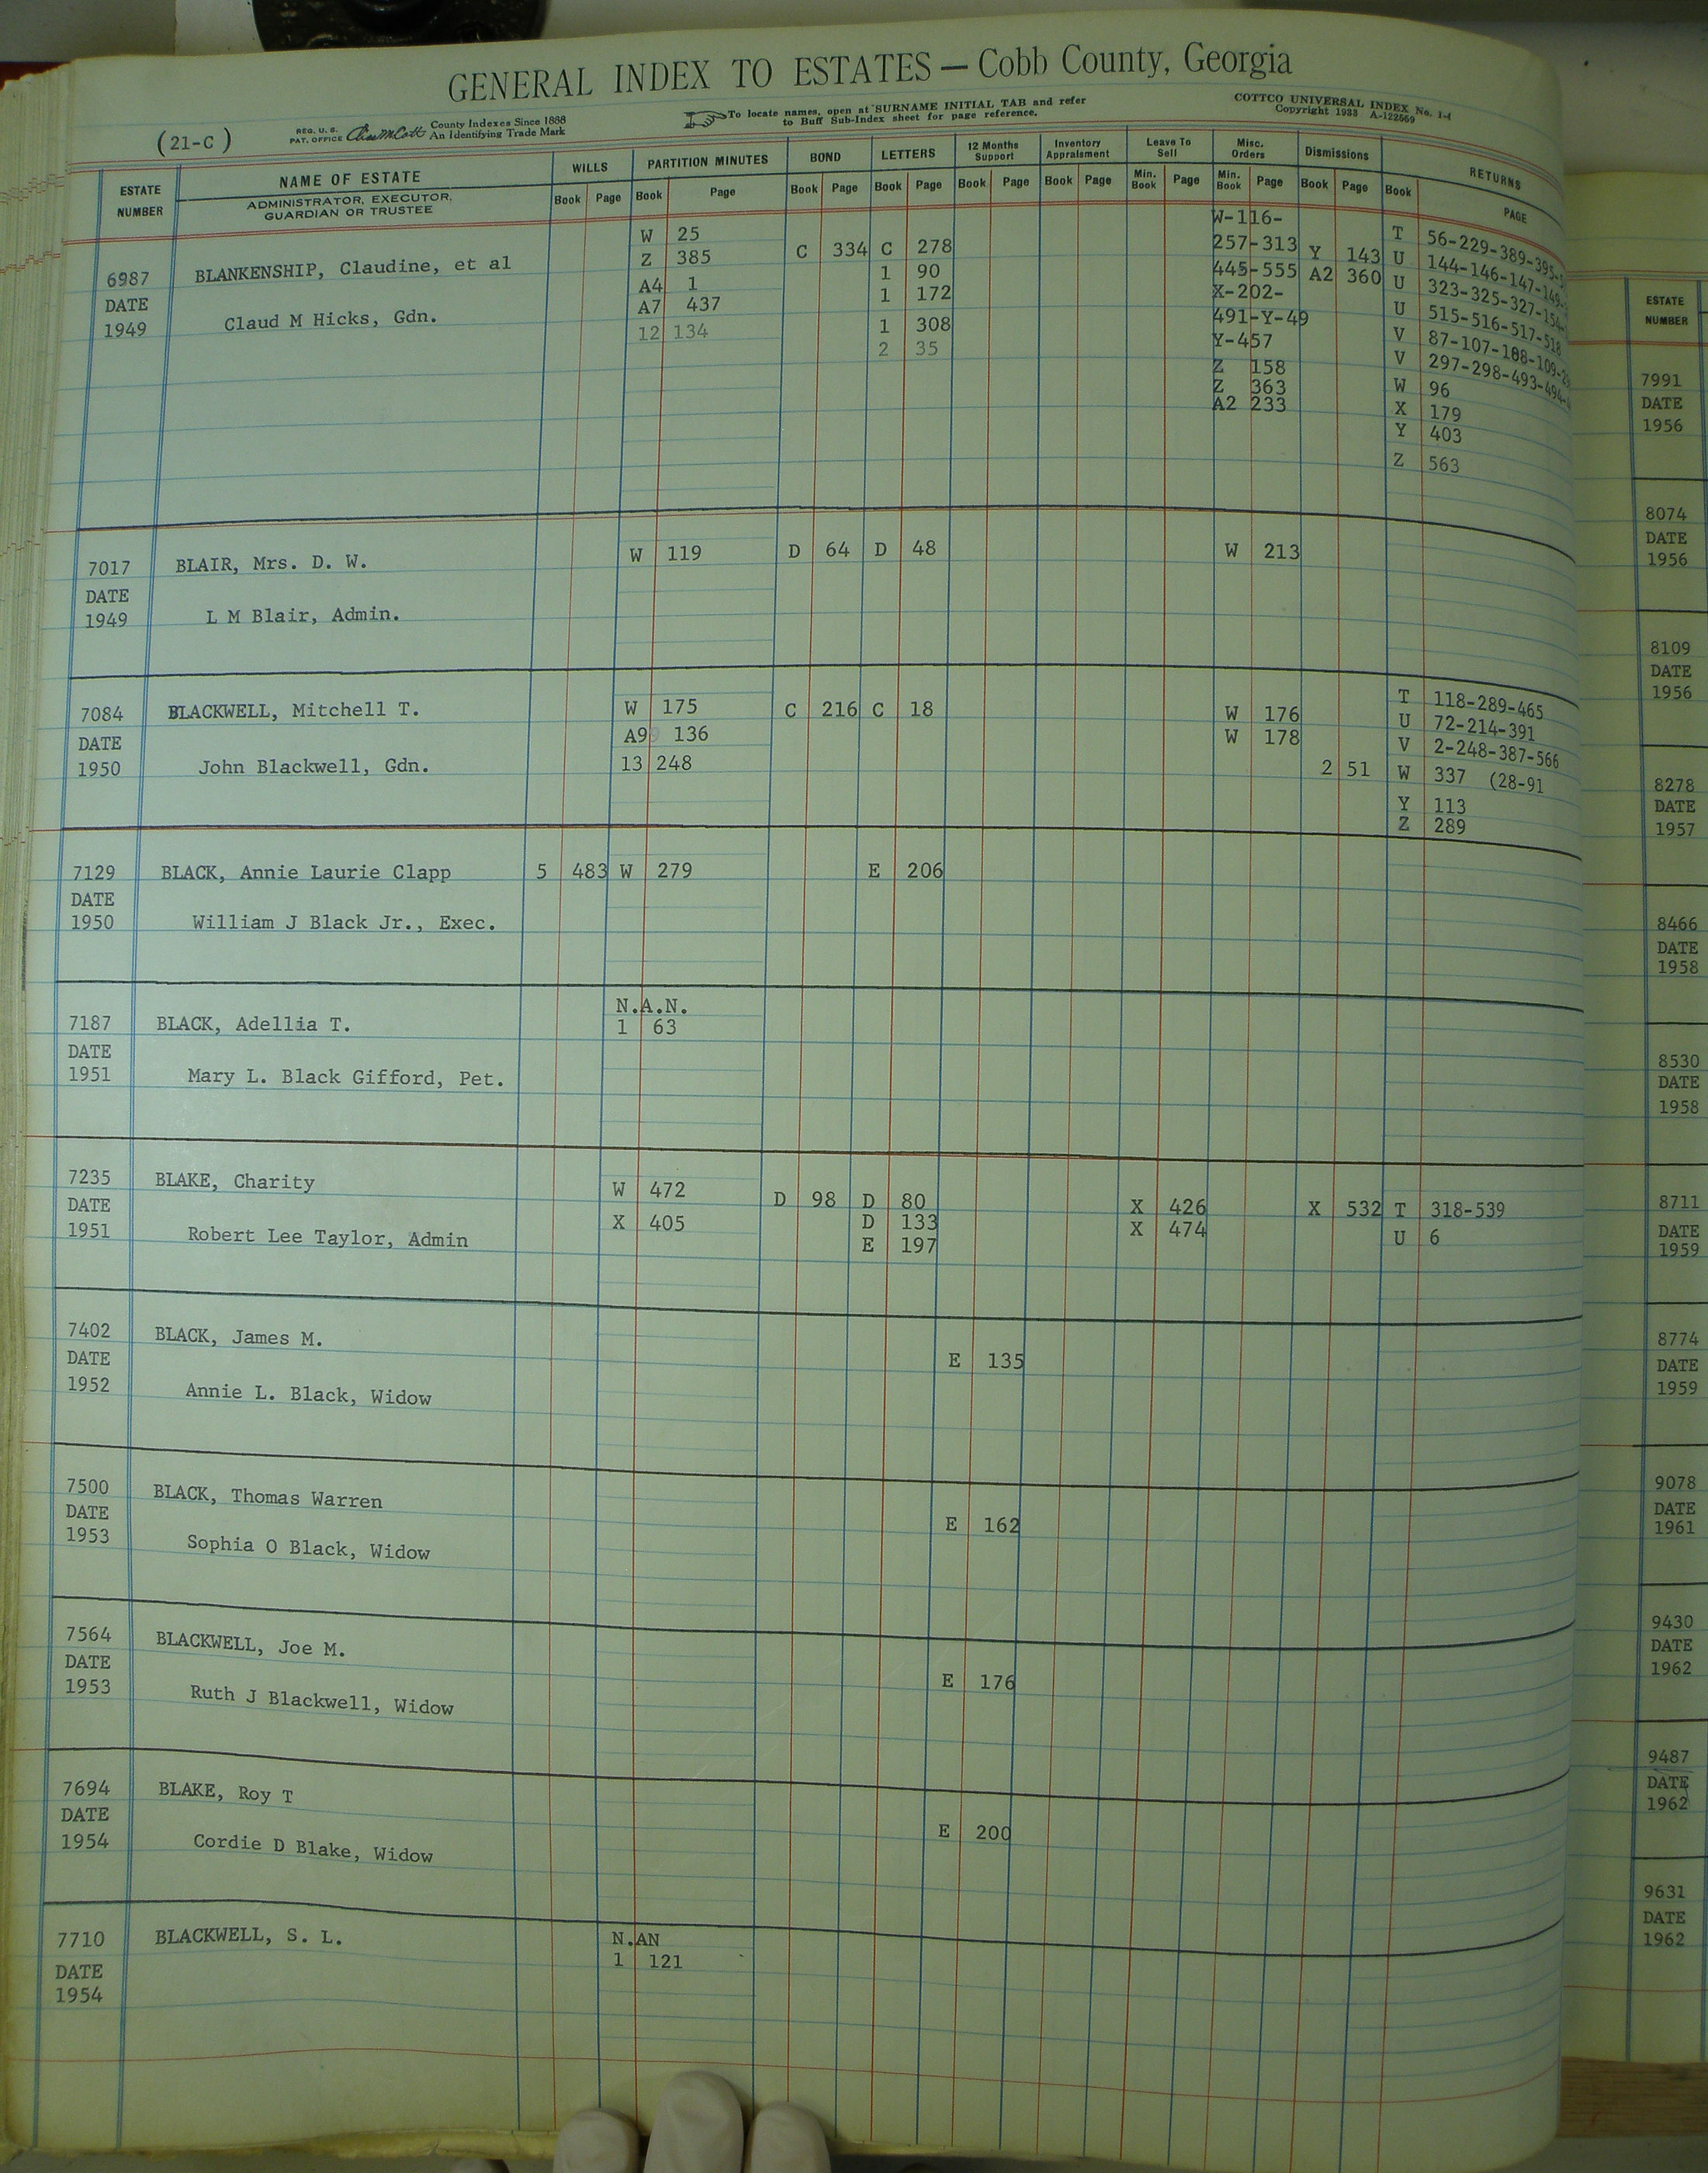 GENERAL INDEX TO ESTATES — Cobb County, Georgia
(21-C)
REG. U. S. PAT. OFFICE
County Indexes Since 1888
An Identifying Trade Mark
To locate names, open at SURNAME INITIAL TAB and refer
to Buff Sub-Index sheet for page reference.
COTTCO UNIVERSAL INDEX No. 1-4
Copyright 1933 A-122669
ESTATE NUMBER
NAME OF ESTATE
ADMINISTRATOR, EXECUTOR, GUARDIAN OR TRUSTEE
WILLS Book Page
PARTITION MINUTES Book Page
BOND Book Page
LETTERS Book Page
12 Months Support Book Page
Inventory Appraisment Book Page
Leave To Sell Min. Book Page
Misc. Orders Min. Book Page
Dismissions Book Page
RETURNS Book PAGE
6987 DATE 1949
BLANKENSHIP, Claudine, et al
Claud M Hicks, Gdn.
W 25
Z 385
A4 1
A7 437
12 134
C 334
C 278
1 90
1 172
1 308
2 35
W-116-
257-313
445-555
X-202-
491-Y-49
Y-457
Z 158
Z 363
A2 233
Y 143
A2 360
T 56-229-389-395-
U 144-146-147-149-
U 323-325-327-154-
U 515-516-517-518
V 87-107-108-109-
V 297-298-493-494-
W 96
X 179
Y 403
Z 563
7017 DATE 1949
BLAIR, Mrs. D. W.
L M Blair, Admin.
W 119
D 64
D 48
W 213
7084 DATE 1950
BLACKWELL, Mitchell T.
John Blackwell, Gdn.
W 175
A9 136
13 248
C 216
C 18
W 176
W 178
2 51
T 118-289-465
U 72-214-391
V 2-248-387-566
W 337 (28-91
Y 113
Z 289
7129 DATE 1950
BLACK, Annie Laurie Clapp
William J Black Jr., Exec.
5 483
W 279
E 206
7187 DATE 1951
BLACK, Adellia T.
Mary L. Black Gifford, Pet.
N.A.N.
1 63
7235 DATE 1951
BLAKE, Charity
Robert Lee Taylor, Admin
W 472
X 405
D 98
D 80
D 133
E 197
X 426
X 474
X 532
T 318-539
U 6
7402 DATE 1952
BLACK, James M.
Annie L. Black, Widow
E 135
7500 DATE 1953
BLACK, Thomas Warren
Sophia O Black, Widow
E 162
7564 DATE 1953
BLACKWELL, Joe M.
Ruth J Blackwell, Widow
E 176
7694 DATE 1954
BLAKE, Roy T
Cordie D Blake, Widow
E 200
7710 DATE 1954
BLACKWELL, S. L.
N.AN
1 121
ESTATE NUMBER
7991 DATE 1956
8074 DATE 1956
8109 DATE 1956
8278 DATE 1957
8466 DATE 1958
8530 DATE 1958
8711 DATE 1959
8774 DATE 1959
9078 DATE 1961
9430 DATE 1962
9487 DATE 1962
9631 DATE 1962